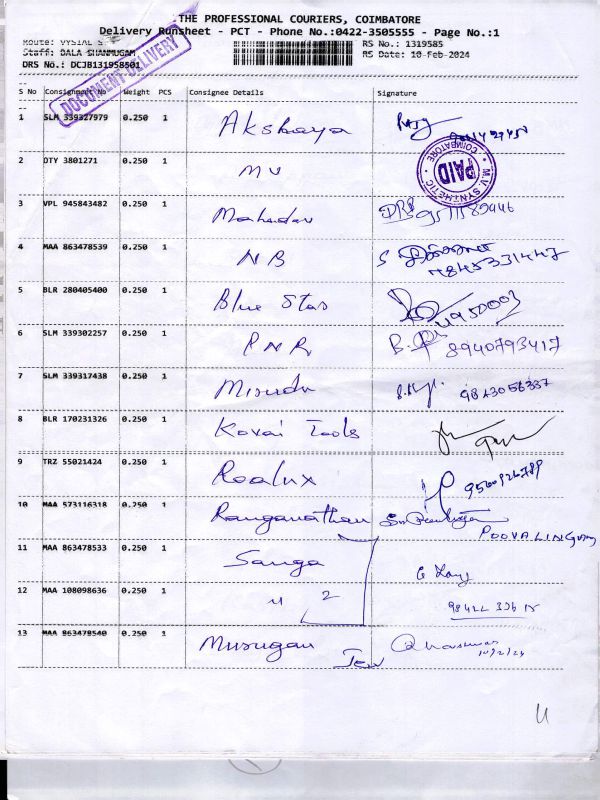 THE PROFESSIONAL COURIERS, COIMBATORE
Delivery Runsheet - PCT - Phone No.:0422-3505555 - Page No.:1
Route: VYSIAL S
RS No.: 1319585
Staff: BALA SHANMUGAM
RS Date: 10-Feb-2024
DRS No.: DCJB131958501
DOCUMENT DELIVERY
S No Consignment No Weight PCS Consignee Details Signature
1 SLM 339327979 0.250 1 Akshaya
2 DTY 3801271 0.250 1 MV
M.V. SYNTHETIC COIMBATORE PAID
3 VPL 945843482 0.250 1 Mahadev
4 MAA 863478539 0.250 1 NB
5 BLR 280405400 0.250 1 Blue Star
6 SLM 339302257 0.250 1 PNR 8940793417
7 SLM 339317438 0.250 1 9843056337
8 BLR 170231326 0.250 1 Kovai Tools
9 TRZ 55021424 0.250 1 Roalux
10 MAA 573116318 0.250 1 Ranganathan
POOVALINGAM
11 MAA 863478533 0.250 1 Sanga
12 MAA 108098636 0.250 1 " 2
13 MAA 863478540 0.250 1 Murugan Jew
10/2/24